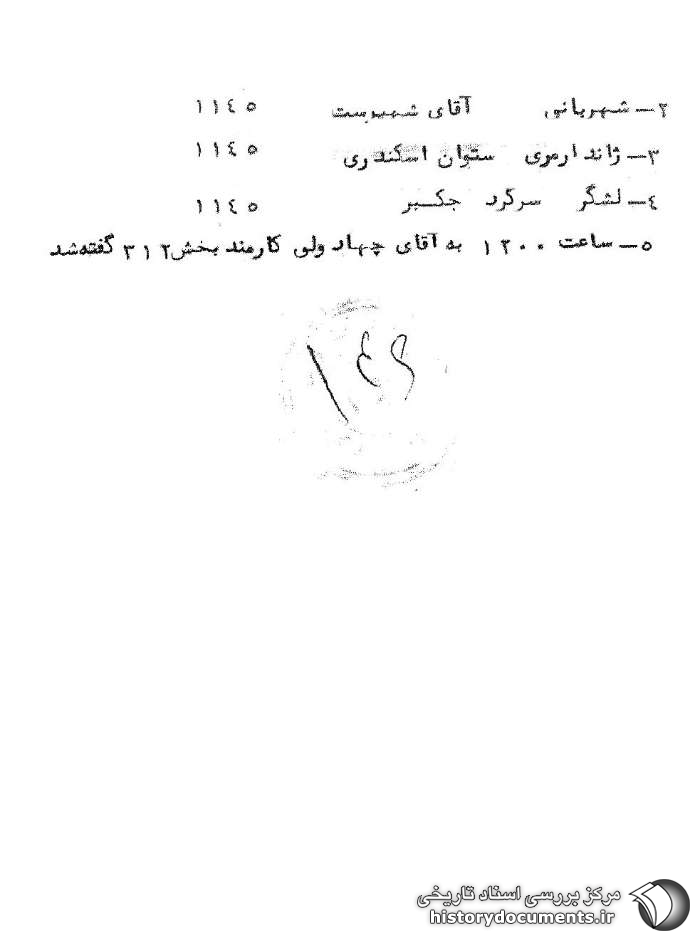 ۲ــ شهربانی آقای شهپرست ۱۱٤٥
۳ــ ژاندارمری ستوان اسکندری ۱۱٤٥
٤ــ لشگر سرگرد جکسر ۱۱٤٥
٥ــ ساعت ۱۲۰۰ به آقای چهاردولی کارمند بخش ۳۱۲ گفته شد
۱۴۹
مرکز بررسی اسناد تاریخی
historydocuments.ir